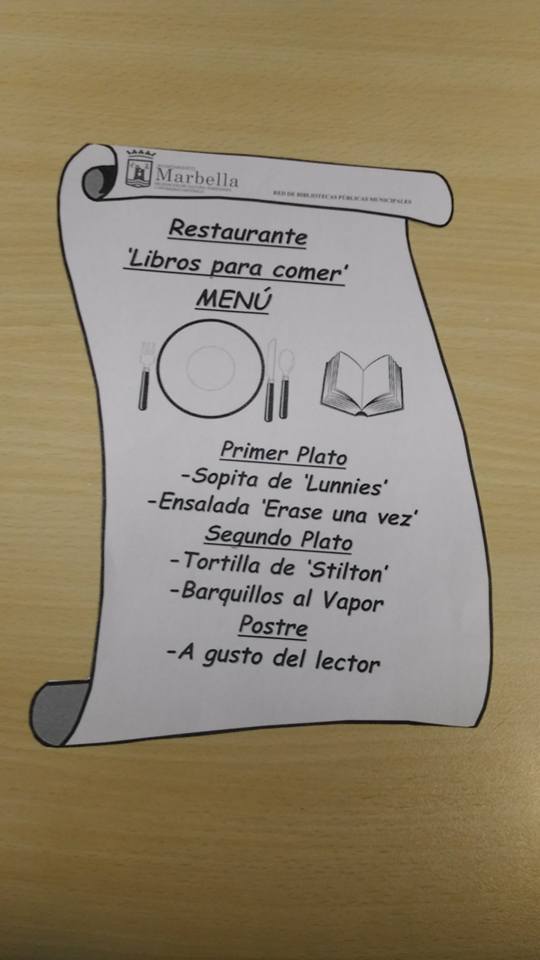 AYUNTAMIENTO
Marbella
RED DE BIBLIOTECAS PÚBLICAS MUNICIPALES
Restaurante
'Libros para comer'
MENÚ
Primer Plato
-Sopita de 'Lunnies'
-Ensalada 'Erase una vez'
Segundo Plato
-Tortilla de 'Stilton'
-Barquillos al Vapor
Postre
-A gusto del lector